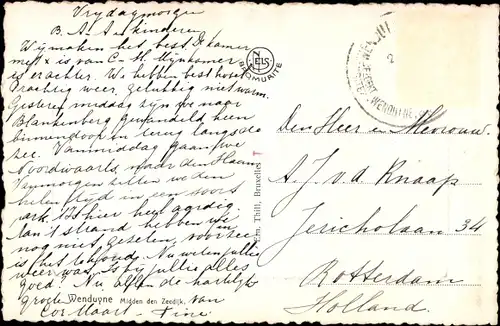 Vrydagmorgen
B. A. A. en kinderen
Wij maken het best. De kamer
met x is van C-M. Mijn kamer
is erachter. We hebben best hotel
Prachtig weer, gelukkig niet warm.
Gisteren middag zijn we naar
Blankenberg gewandeld heen
binnendoor en terug langs de
zee. Vanmiddag gaan we
Noordwaarts, naar den Haan
Vanmorgen zitten we den
helen tijd in een soort
park. 't Is hier heel aardig.
Aan 't strand hebben we
nog niet gezeten, voor zee
is het te koud. Nu weten jullie
weer wat. Is bij jullie alles
goed? Nu, allen de hartelijke
groete van
Cor Maart - Tine
Wenduyne Midden den Zeedijk,
NELS
BROMURITE
Ern. Thill, Bruxelles
WENDUYNE
Den Heer en Mevrouw
A. J. v. d. Knaap
Jericholaan 34
Rotterdam
Holland.